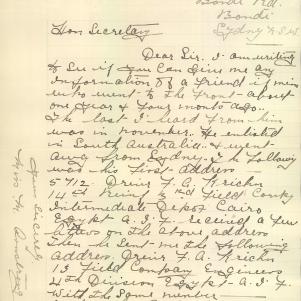 Bondi Rd.
Bondi
Sydney N.S.W.
Hon Secretary
Dear Sir. I am writing
to see if you can give me any
information of a friend of mine
who went to the front about
one year & four months ago.
The last I heard from him
was in november. He enlisted
in South Australia & went
away from Sydney. The following
was his first address
5712 Driver F. A.
Field Comky
Intermediate Depot Cairo
Egypt A.I.F. received a few
letters on the above address
then he sent me the following
address. Driver F. A.
13 Field Company Engineers
4th Division Egypt A.I.F.
with the same number
Yours sincerely
Miss M.